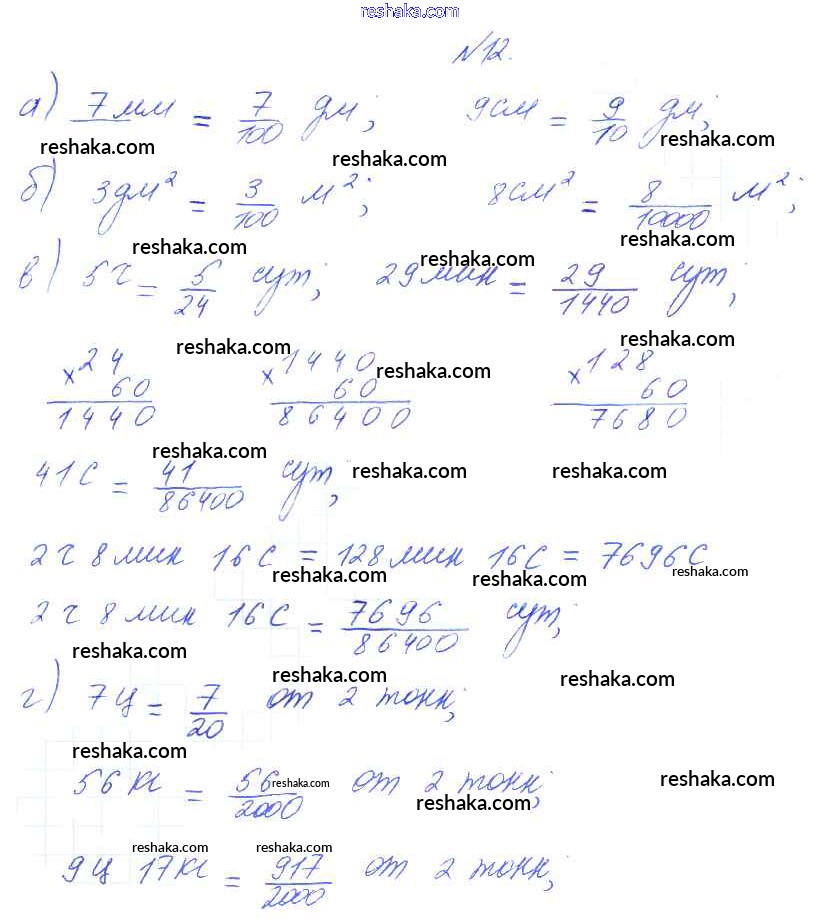 reshaka.com
№12.
а) 7мм = 7/100 дм; 9см = 9/10 дм;
reshaka.com reshaka.com reshaka.com
б) 3дм² = 3/100 м²; 8см² = 8/10000 м²;
reshaka.com reshaka.com
в) 5ч = 5/24 сут; 29мин = 29/1440 сут;
reshaka.com
reshaka.com reshaka.com
×24 ×1440 ×128
reshaka.com
60 60 60
1440 86400 7680
reshaka.com
41с = 41/86400 сут;
reshaka.com reshaka.com
2ч 8мин 16с = 128мин 16с = 7696с
reshaka.com reshaka.com reshaka.com
2ч 8мин 16с = 7696/86400 сут;
reshaka.com
reshaka.com reshaka.com
г) 7ц = 7/20 от 2 тонн;
reshaka.com
56кг = 56/2000 от 2 тонн;
reshaka.com reshaka.com reshaka.com
reshaka.com reshaka.com
9ц 17кг = 917/2000 от 2 тонн;